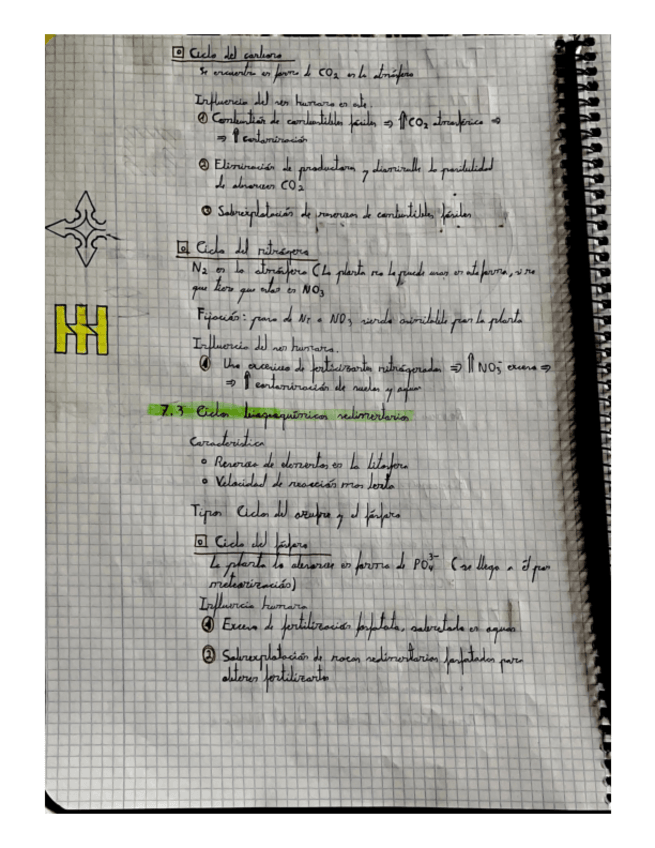 Ciclo del carbono
Se encuentra en forma de CO2 en la atmósfera
Influencia del ser humano en este.
① Combustión de combustibles fósiles ⇒ ⇑CO2 atmosférico ⇒
⇒ ↑ contaminación
② Eliminación de productores y disminuye la posibilidad
de absorber CO2
③ Sobreexplotación de reservas de combustibles fósiles
Ciclo del nitrógeno
N2 en la atmósfera (La planta no la puede usar en esta forma, si no
que tiene que estar en NO3
Fijación: pasa de N2 a NO3 siendo asimilable por la planta
Influencia del ser humano.
① Uso excesivo de fertilizantes nitrogenados ⇒ ⇑ NO3- exceso ⇒
⇒ ↑ contaminación de suelos y aguas
7.3 Ciclos biogeoquímicos sedimentarios
Característica
Reservas de elementos en la litosfera
Velocidad de reacción mas lenta
Tipos Ciclos del azufre y el fósforo
Ciclo del fósforo
La planta lo absorbe en forma de PO4 3- (se llega a él por
meteorización)
Influencia humana
① Exceso de fertilización fosfatada, sobretodo en aguas
② Sobreexplotación de rocas sedimentarias fosfatadas para
obtener fertilizante